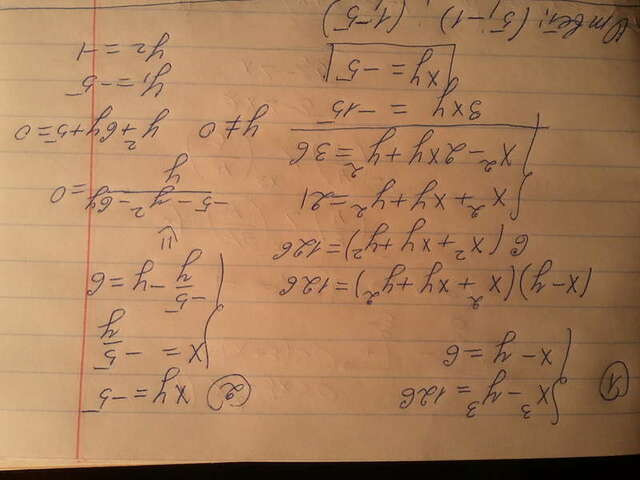 ① { x³ - y³ = 126
x - y = 6
(x-y)(x²+xy+y²)=126
6(x²+xy+y²)=126
{ x²+xy+y²=21
x²-2xy+y²=36
3xy = -15
xy = -5
② xy = -5
{ x = -5/y
-5/y - y = 6
=
(-5-y²-6y)/y = 0
y ≠ 0 y²+6y+5=0
y₁=-5
y₂=-1
Ответ: (5;-1); (1;-5)